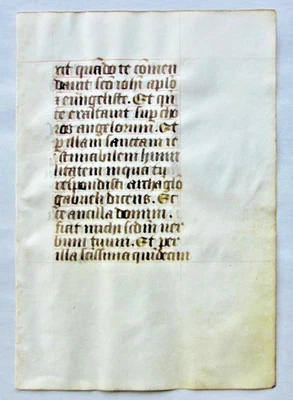 xit quãdo te cõmen
dauit sčo ioh̃i ap̃lo
⁊ euãgeliste. Et qñ
te exaltauit sup̱ cho
ros angelorum. Et
ꝑ illam sanctam ⁊e
stimabilem humi
litatem in qua tu
respondisti archãglo
gabrieli dicens. Ec
ce ancilla domini.
fiat michi sedm̃ uer
bum tuum. Et per
illa sc̃issima quĩdecim